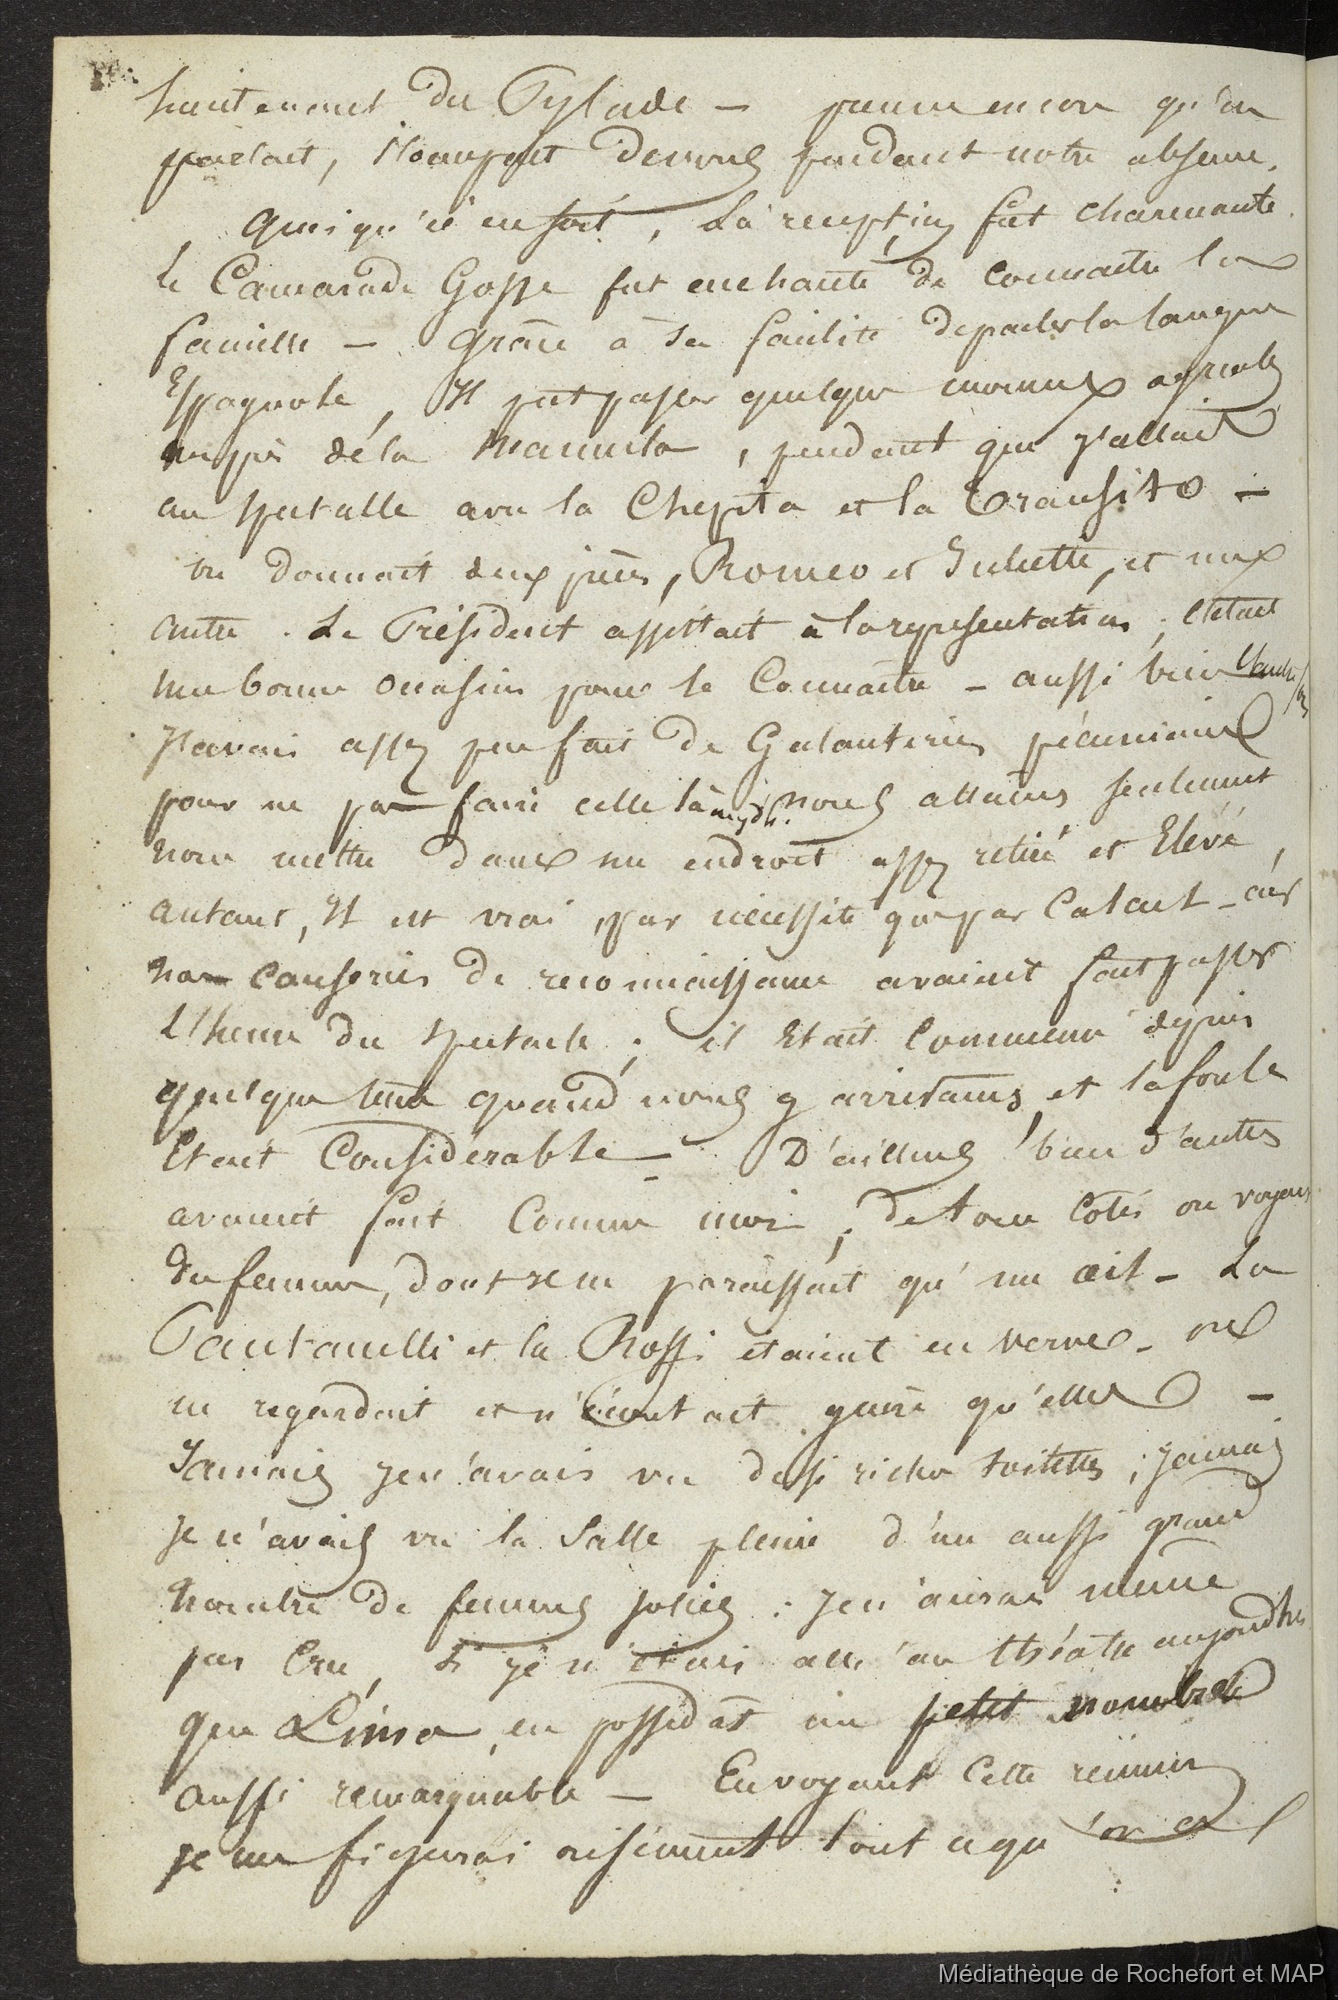 hautement du Pylade — preuve encore qu'on
parlait, s'occupait de nous pendant notre absence.
Quoiqu'il en soit, la réception fut charmante.
le Camarade Gosse fut enchanté de connaitre la
famille — Grâce à sa facilité de parler la langue
Espagnole, Il put passer quelques moments agréables
auprès de la Manuela, pendant que j'allais
au spectacle avec la Chepita et la Transito —
on donnait deux pièces, Romeo et Juliette, et une
autre. Le Président assistait à la représentation; C'était
une bonne occasion pour le Connaitre — aussi bien
J'avais assez peu fait de Galanteries pécuniaires
pour ne pas faire celle là aujd'h. nous allâmes seulement
nous mettre dans un endroit assez retiré et Elevé,
autant, Il est vrai, par nécessité que par Calcul — car
nos causeries de reconnaissance avaient fait passer
L'heure du spectacle; il Etait Commencé depuis
quelque tems quand nous y arrivâmes, et la foule
Etait Considerable — D'ailleurs bien d'autres
avaient fait Comme moi; de tous Cotés on voyait
des femmes, dont il ne paraissait qu'un œil — La
Pantanelli et la Rossi étaient en verve — on
ne regardait et n'écoutait guère qu'elles —
Jamais je n'avais vu de si riches toilettes; jamais
je n'avais vu la Salle pleine d'un aussi grand
nombre de femmes jolies: je n'aurais même
pas Cru, si je n'étais allé au théâtre aujourd'hui
que Lima en possédât un petit nombre
aussi remarquable — En voyant Cette réunion
je me figurai aisément tout ce qu'on a
Médiathèque de Rochefort et MAP